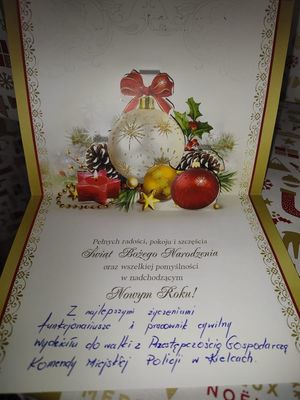 Pełnych radości, pokoju i szczęścia
Świąt Bożego Narodzenia
oraz wszelkiej pomyślności
w nadchodzącym
Nowym Roku!
Z najlepszymi życzeniami
funkcjonariusze i pracownik cywilny
Wydziału do walki z Przestępczością Gospodarczą
Komendy Miejskiej Policji w Kielcach.